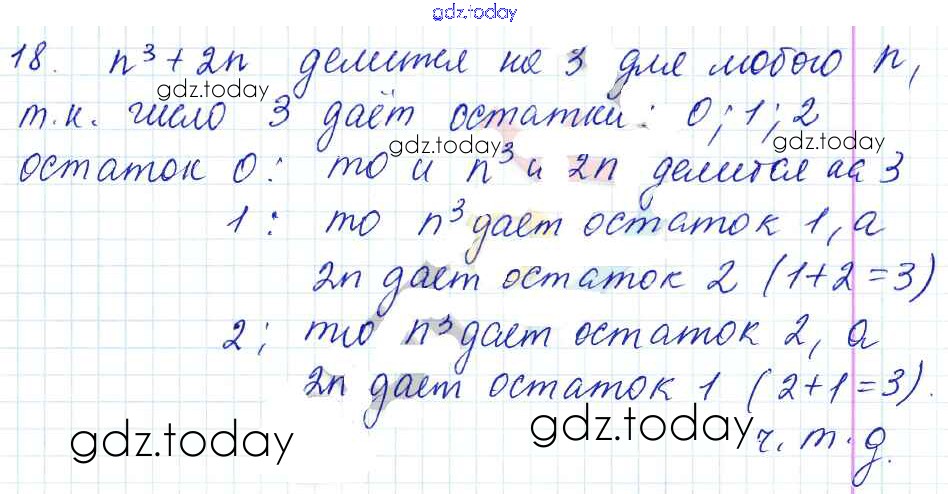 gdz.today
18. n³ + 2n делится на 3 для любого n,
gdz.today
т.к. число 3 даёт остатки: 0; 1; 2
gdz.today
остаток 0: то и n³ и 2n делится на 3
1: то n³ дает остаток 1, а
2n дает остаток 2 (1+2=3)
2; то n³ дает остаток 2, а
2n дает остаток 1 (2+1=3).
gdz.today
gdz.today
ч.т.д.